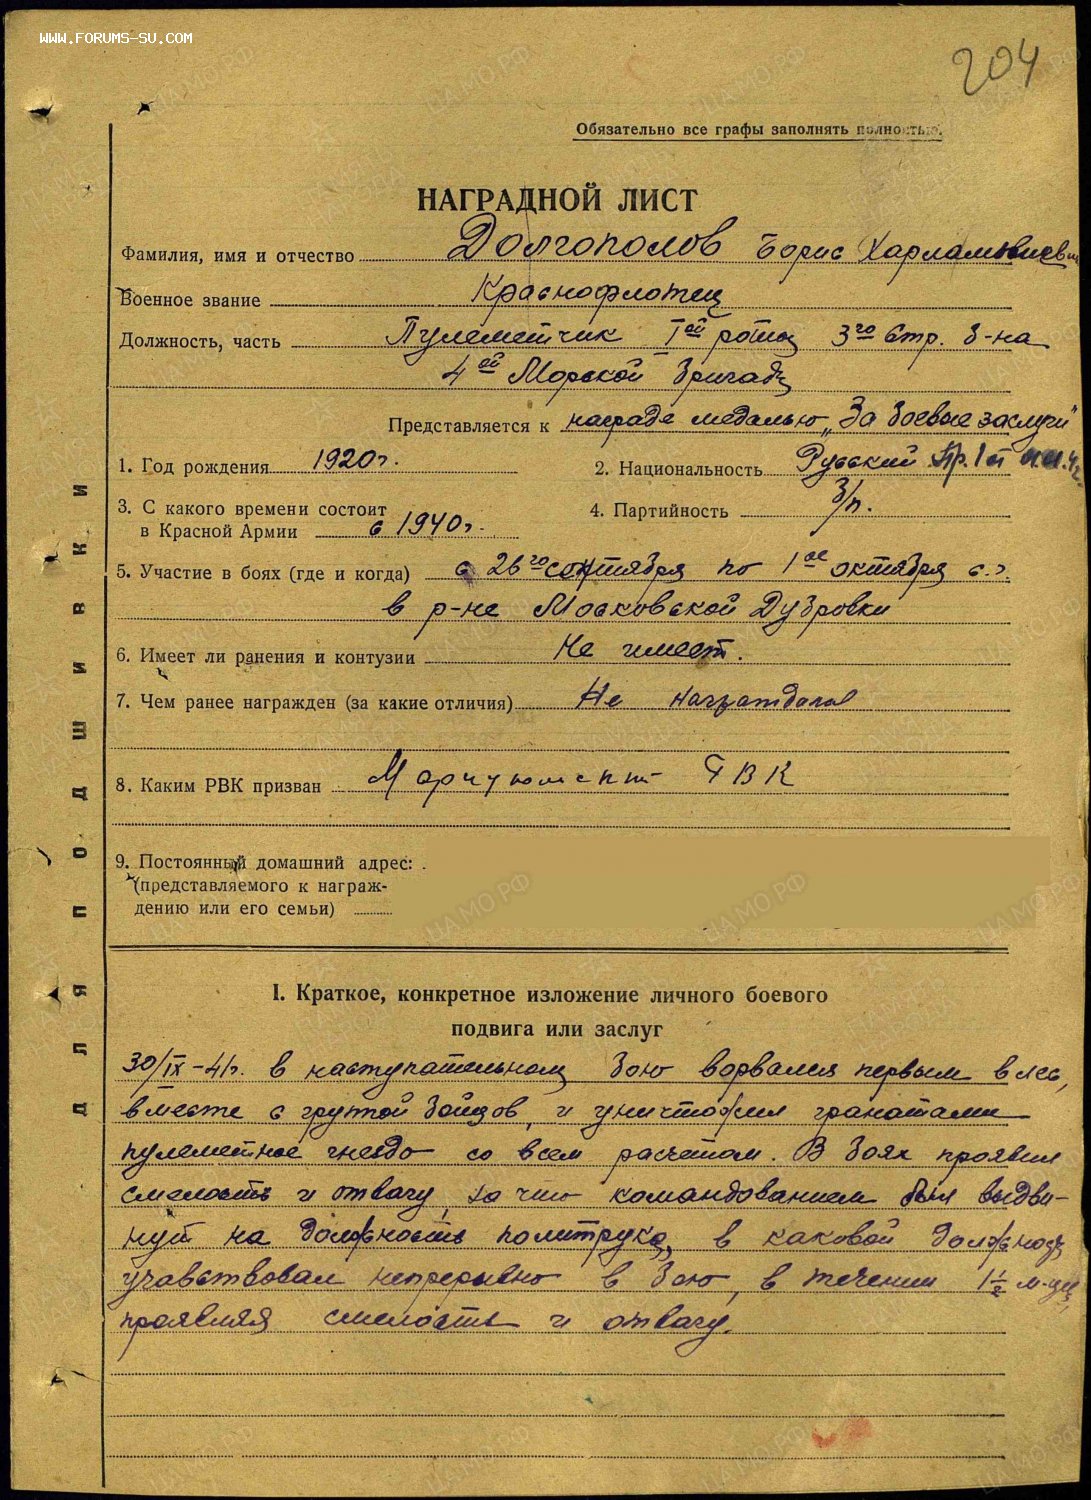 WWW.FORUMS-SU.COM
204
Обязательно все графы заполнять полностью.
НАГРАДНОЙ ЛИСТ
Фамилия, имя и отчество Долгополов Борис Харлампиевич
Военное звание Краснофлотец
Должность, часть Пулеметчик I ой роты 3го Стр. б-на
4 ой Морской бригады
Представляется к награде медалью „За боевые заслуги"
1. Год рождения 1920г. 2. Национальность Русский
3. С какого времени состоит
в Красной Армии с 1940г. 4. Партийность б/п.
5. Участие в боях (где и когда) с 26го сентября по 1ое октября с.г.
в р-не Московской Дубровки
6. Имеет ли ранения и контузии Не имеет.
7. Чем ранее награжден (за какие отличия) Не награждался
8. Каким РВК призван ГВК
9. Постоянный домашний адрес:
(представляемого к награж-
дению или его семьи)
ДЛЯ ПОДШИВКИ
I. Краткое, конкретное изложение личного боевого
подвига или заслуг
30/IX-41г. в наступательном бою ворвался первым в лес,
вместе с группой бойцов, и уничтожил гранатами
пулеметное гнездо со всем расчетом. В боях проявил
смелость и отвагу, за что командованием был выдви-
нут на должность политрука, в каковой должност
участвовал непрерывно в бою, в течении 1½ м-ца,
проявляя смелость и отвагу.